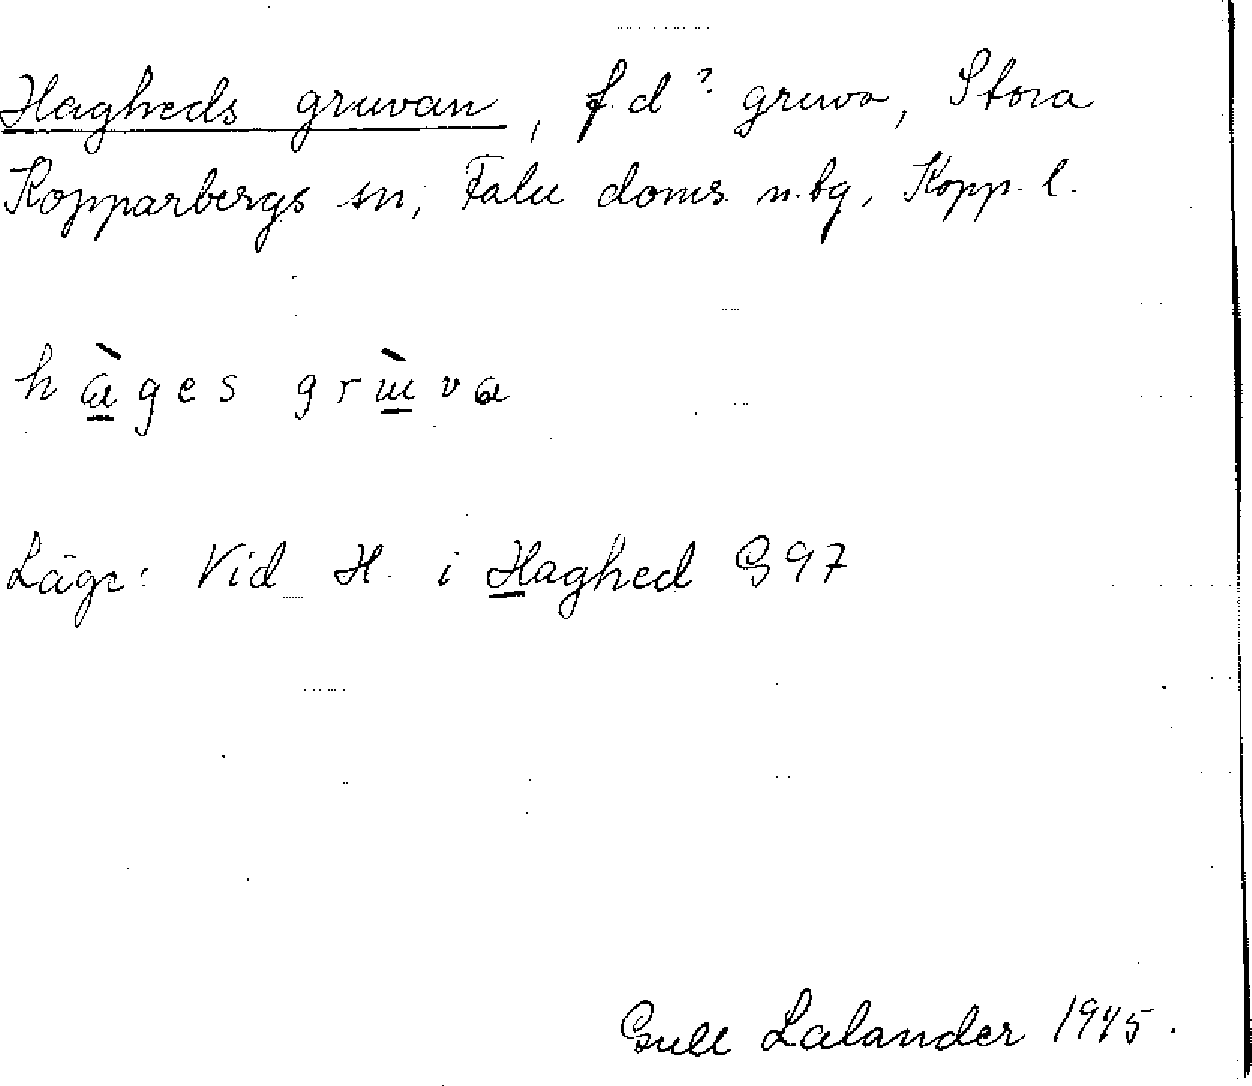 Hagheds gruvan, f.d? gruva, Stora
Kopparbergs sn, Falu doms. n.bg, Kopp. l.
hàges grùva
Läge: Vid H. i Haghed G97
Gull Lalander 1945.